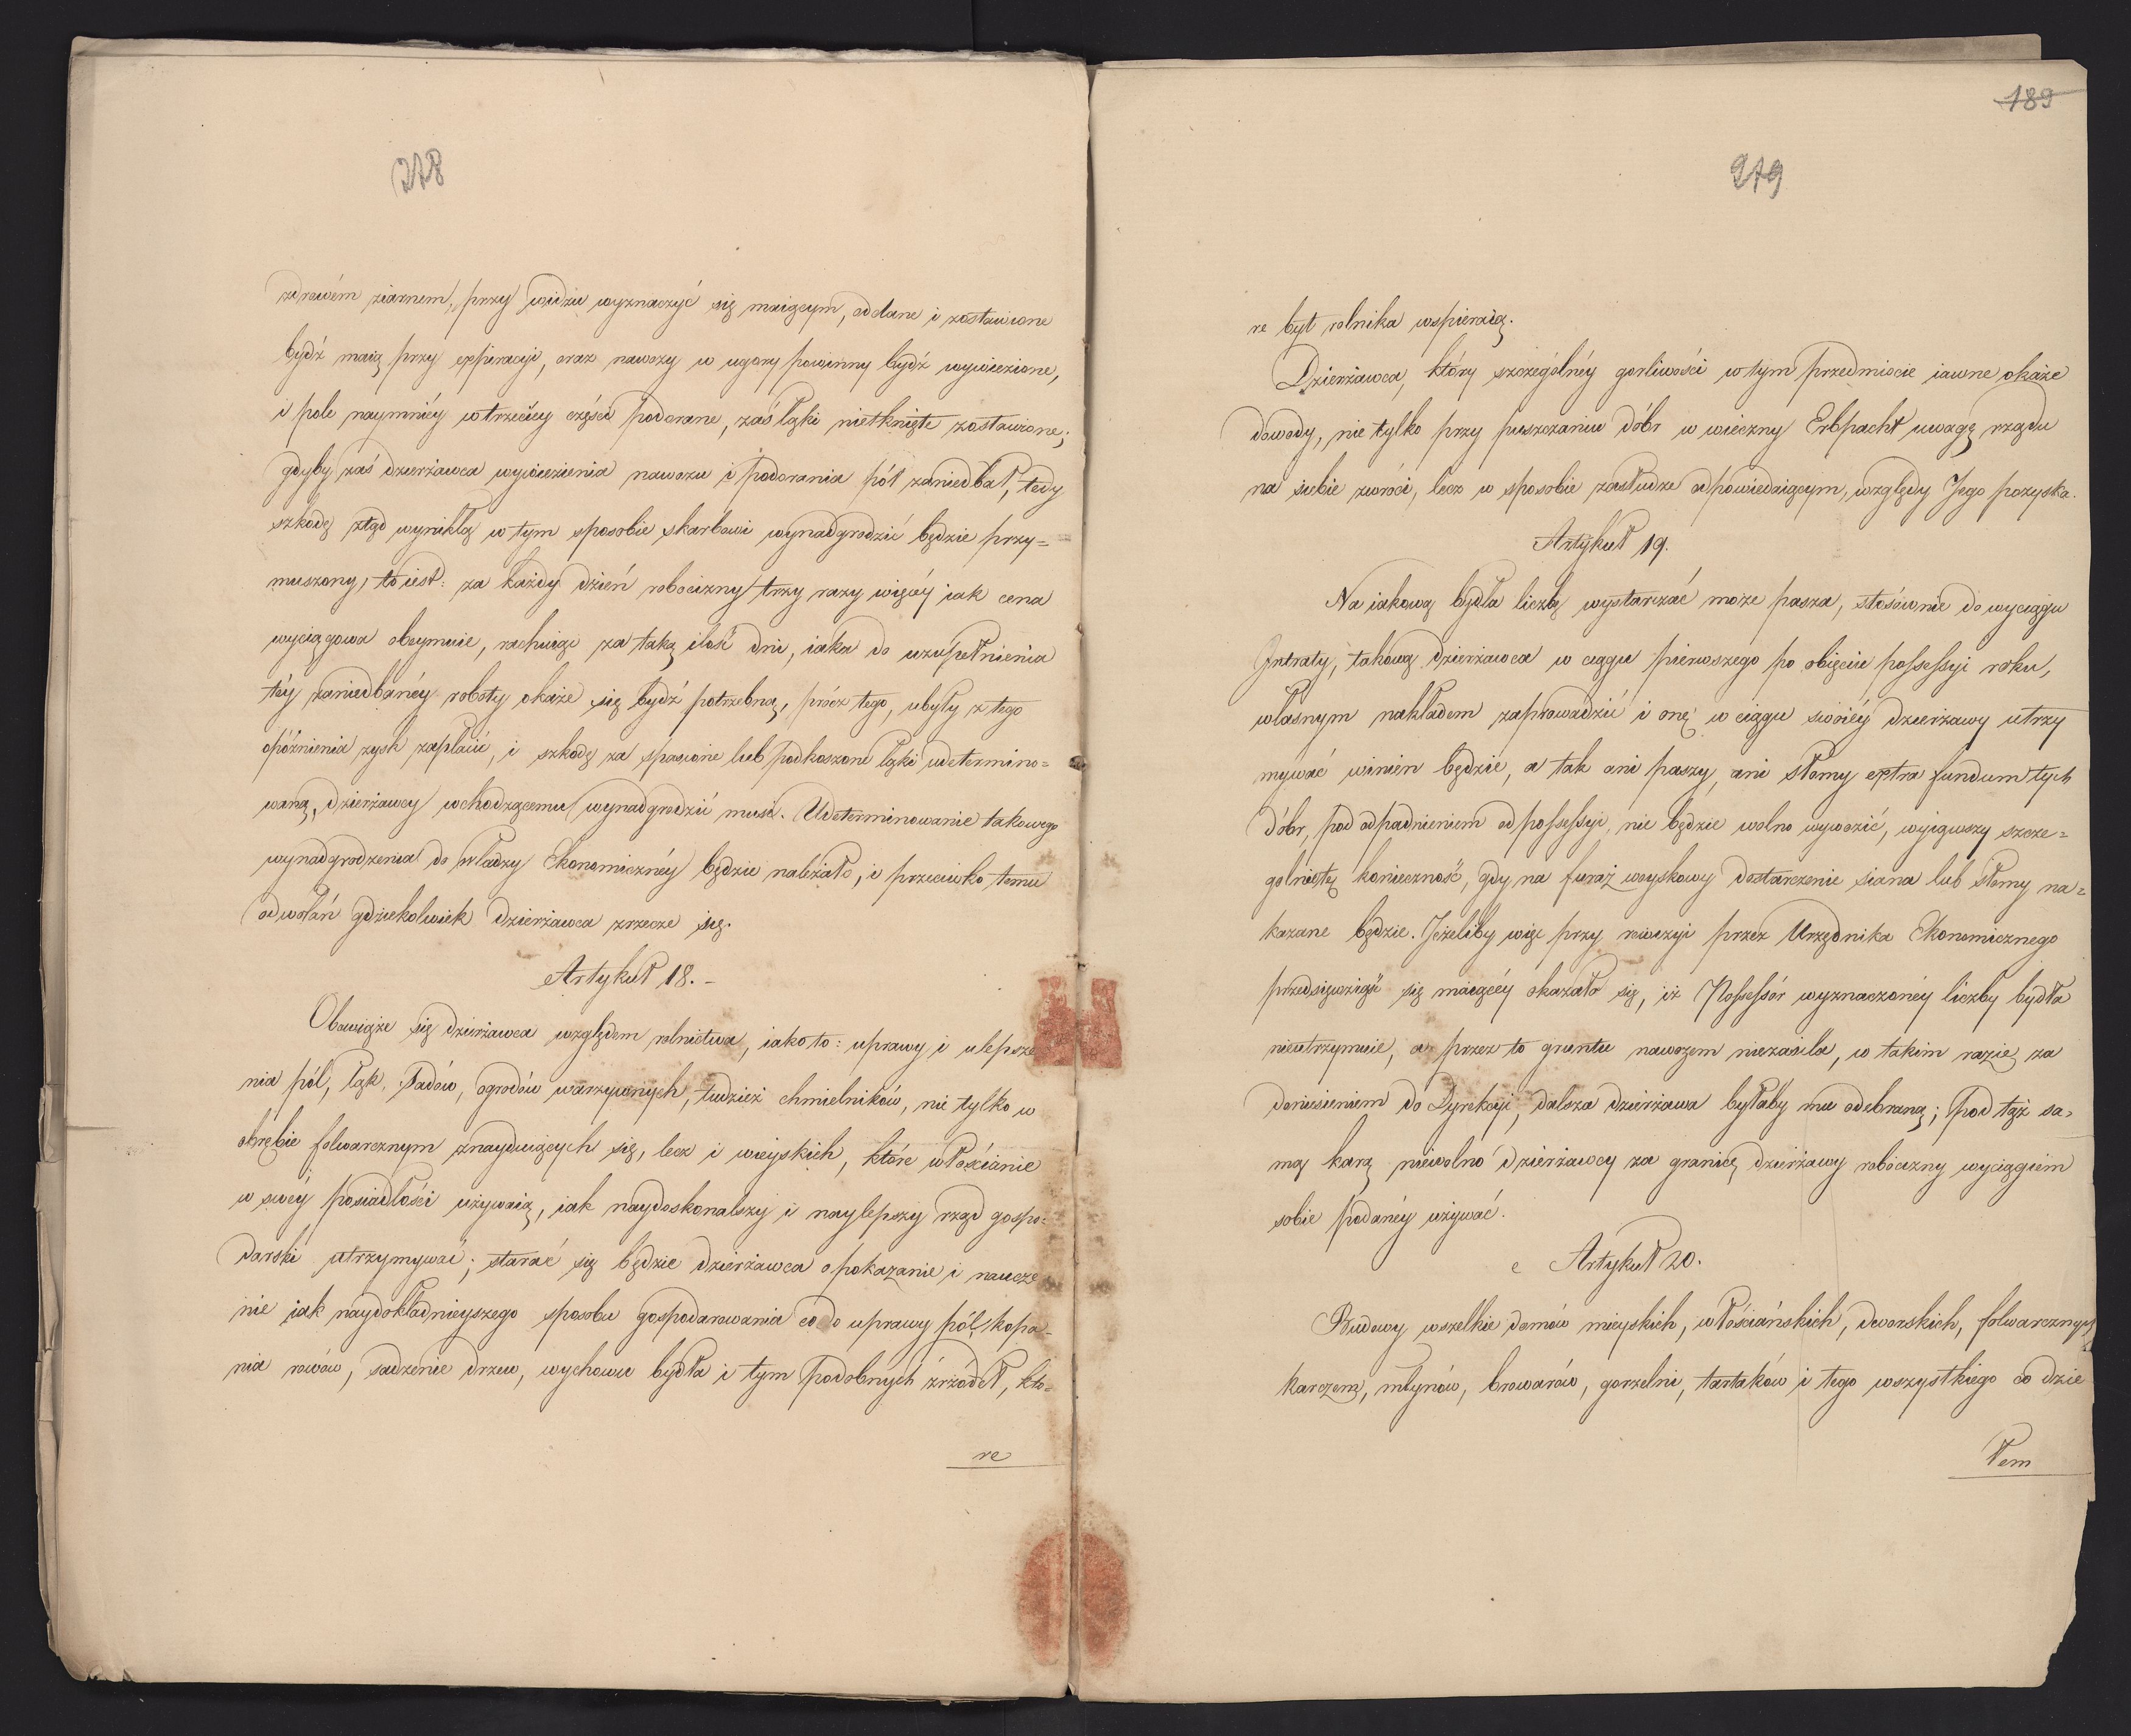 278
zdrowém ziarnem, przy widzu wyznaczyć się maiącym, oddane i zostawione
bydź maią przy expiracyi, oraz nawozy w ugory powinny bydź wywiezione,
i pole naymniéy w trzeciey części podorane, zaś łąki nietknięte zostawione;
gdyby zaś dzierżawca wywiezienia nawozu i podorania pól zaniedbał, tedy
szkodę ztąd wynikłą w tym sposobie skarbowi wynadgrodzić będzie przy=
muszony, to iest: za każdy dzień robocizny trzy razy więcéy iak cena
wyciągowa obeymuie, rachuiąc za taką ilość dni, iaka do uzupełnienia
téy zaniedbanéy roboty okaże się bydź potrzebną, prócz tego, ubyły z tego
opóźnienia zysk zapłacić, i szkodę za spasione lub podkoszone łąki udetermino=
waną, dzierżawcy wchodzącemu wynadgrodzić musi. Udeterminowanie takowego
wynadgrodzenia do władzy Ekonomicznéy będzie należało, i przeciwko temu
odwołań gdziekolwiek dzierżawca zrzecze się.
Artykuł 18.-
Obowiąże się dzierżawca względem rolnictwa, iako to: uprawy i ulepsze
nia pól, łąk, sadów, ogrodów warzywnych, tudzież chmielników, nie tylko w
obrębie folwarcznym znayduiących się, lecz i wieyskich, które włościanie
w swéy posiadłości używaią, iak naydoskonalszy i naylepszy rząd gospo=
darski utrzymywać; starać się będzie dzierżawca o pokazanie i naucze
nie iak naydokładnieyszego sposobu gospodarowania co do uprawy pól, kopa=
nia rowów, sadzenie drzew, wychowu bydła i tym podobnych źrzódeł, któ=
re
189
279
re byt rolnika wspieraią.
Dzierżawca, który szczególnéy gorliwości w tym przedmiocie iawne okaże
dowody, nie tylko przy puszczaniu dóbr w wieczny Erbpacht uwagę rządu
na siebie zwróci, lecz w sposobie zasłudze odpowiedaiącym, względy Jego pozyska.
Artykuł 19.
Na iakową bydła liczbę wystarczać może pasza, stósownie do wyciągu
Intraty, takową dzierżawca w ciągu pierwszego po obięciu possessyi roku,
własnym nakładem zaprowadzić i onę w ciągu swoiéy dzierżawy utrzy
mywać winien będzie, a tak ani paszy, ani słomy extra fundum tych
dóbr, pod odpadnieniem od possessyi, nie będzie wolno wywozić, wyiąwszy szcze=
gólnie tę konieczność, gdy na furaż woyskowy dostarczenie siana lub słomy na=
kazane będzie. Jeżeliby więc przy rewizyi przez Urzędnika Ekonomicznego
przedsięwziąść się maiącéy okazało się, iż Possessór wyznaczonéy liczby bydła
nieutrzymuie, a przez to gruntu nawozem niezasila, w takim razie, za
doniesieniem do Dyrekcyi, dalsza dzierżawa byłaby mu odebraną; pod tąż sa=
mą karą niewolno dzierżawcy za granicę dzierżawy robocizny wyciągiem
sobie podanéy używać.
Artykuł 20.
Budowy wszelkie domów mieyskich, włościańskich, dworskich, folwarcznych
karczem, młynów, browarów, gorzelni, tartaków i tego wszystkiego co dzie
łem